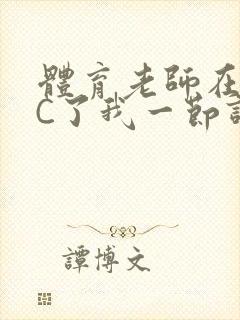 體育老師在
C了我一節
譚博文